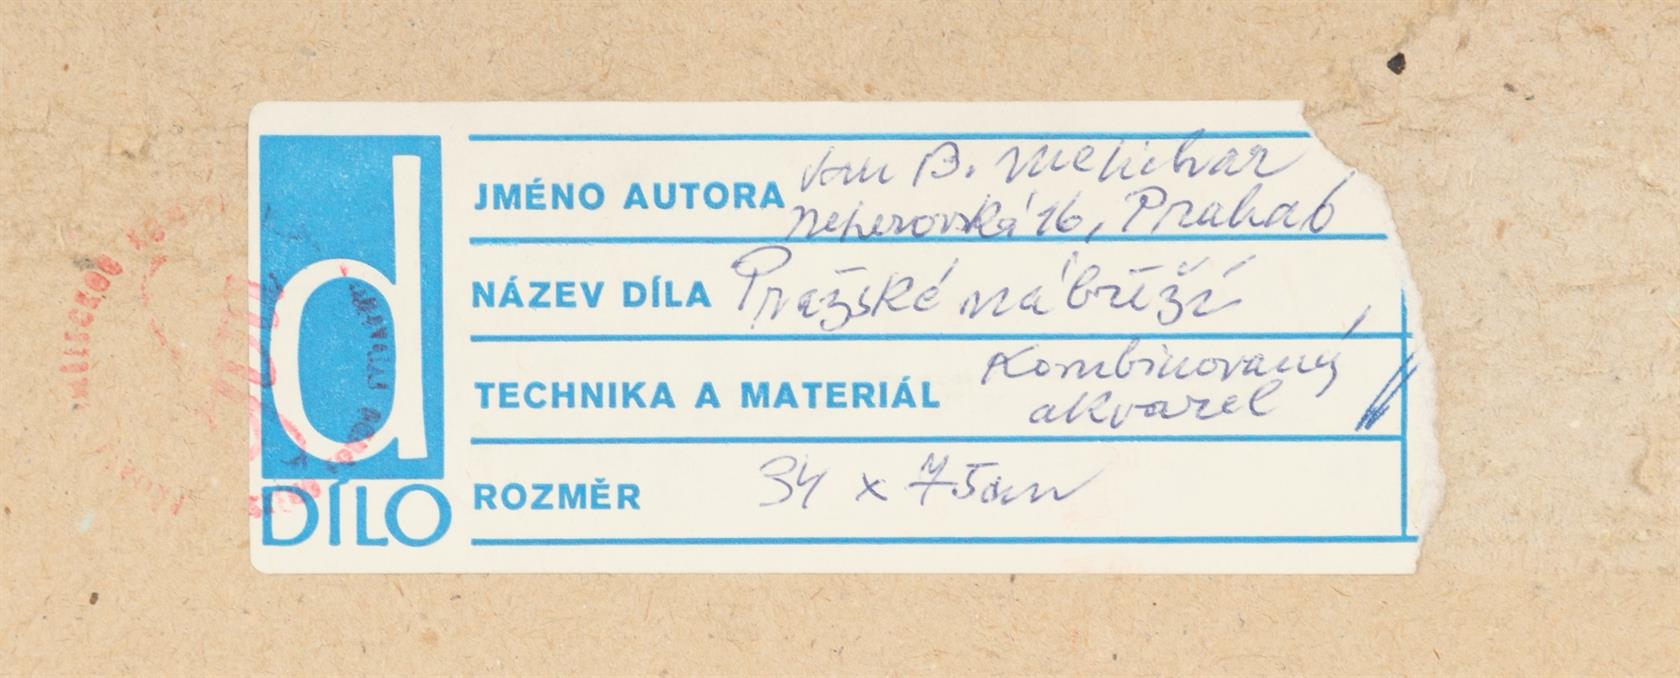 d
DÍLO
JMÉNO AUTORA Jan B. Melichar
16, Praha 6
NÁZEV DÍLA Pražské nábřeží
TECHNIKA A MATERIÁL Kombinovaný
akvarel
ROZMĚR 34 x 75cm